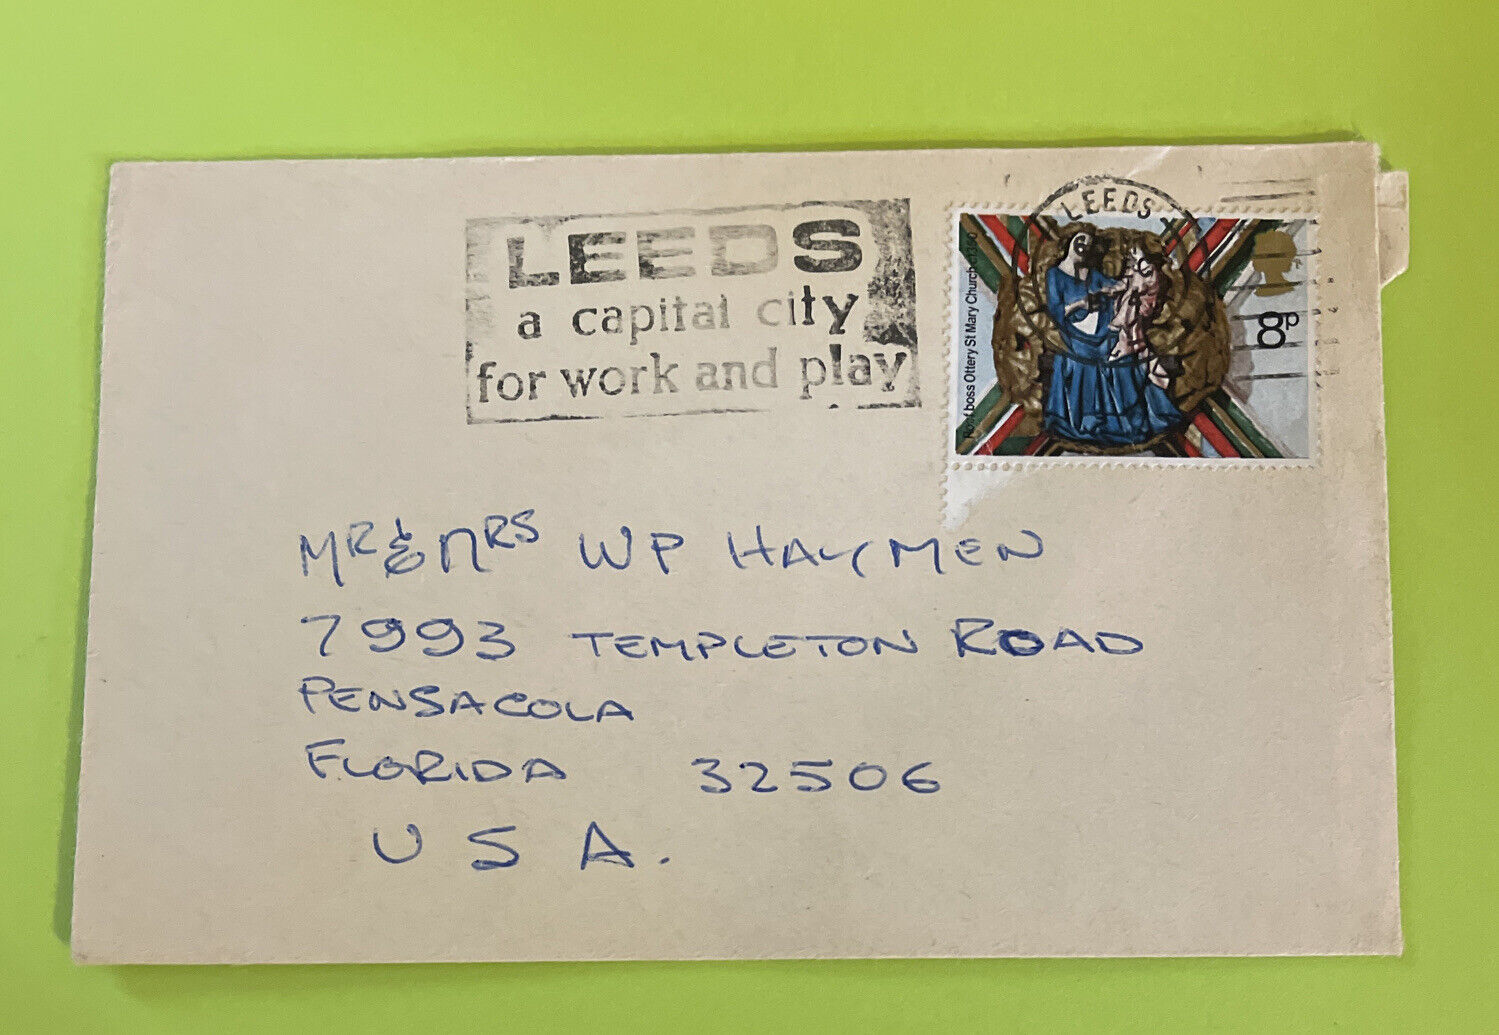 LEEDS
a capital city
for work and play
LEEDS
DEC
1974
Roof boss Ottery St Mary Church c1350
8P
MR & MRS WP HAYMEN
7993 TEMPLETON ROAD
PENSACOLA
FLORIDA 32506
U S A.